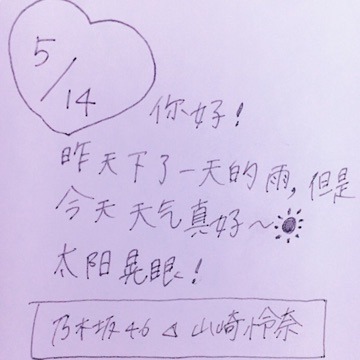 5/14
你好！
昨天下了一天的雨，但是
今天天气真好～
太阳晃眼！
乃木坂46 山崎怜奈